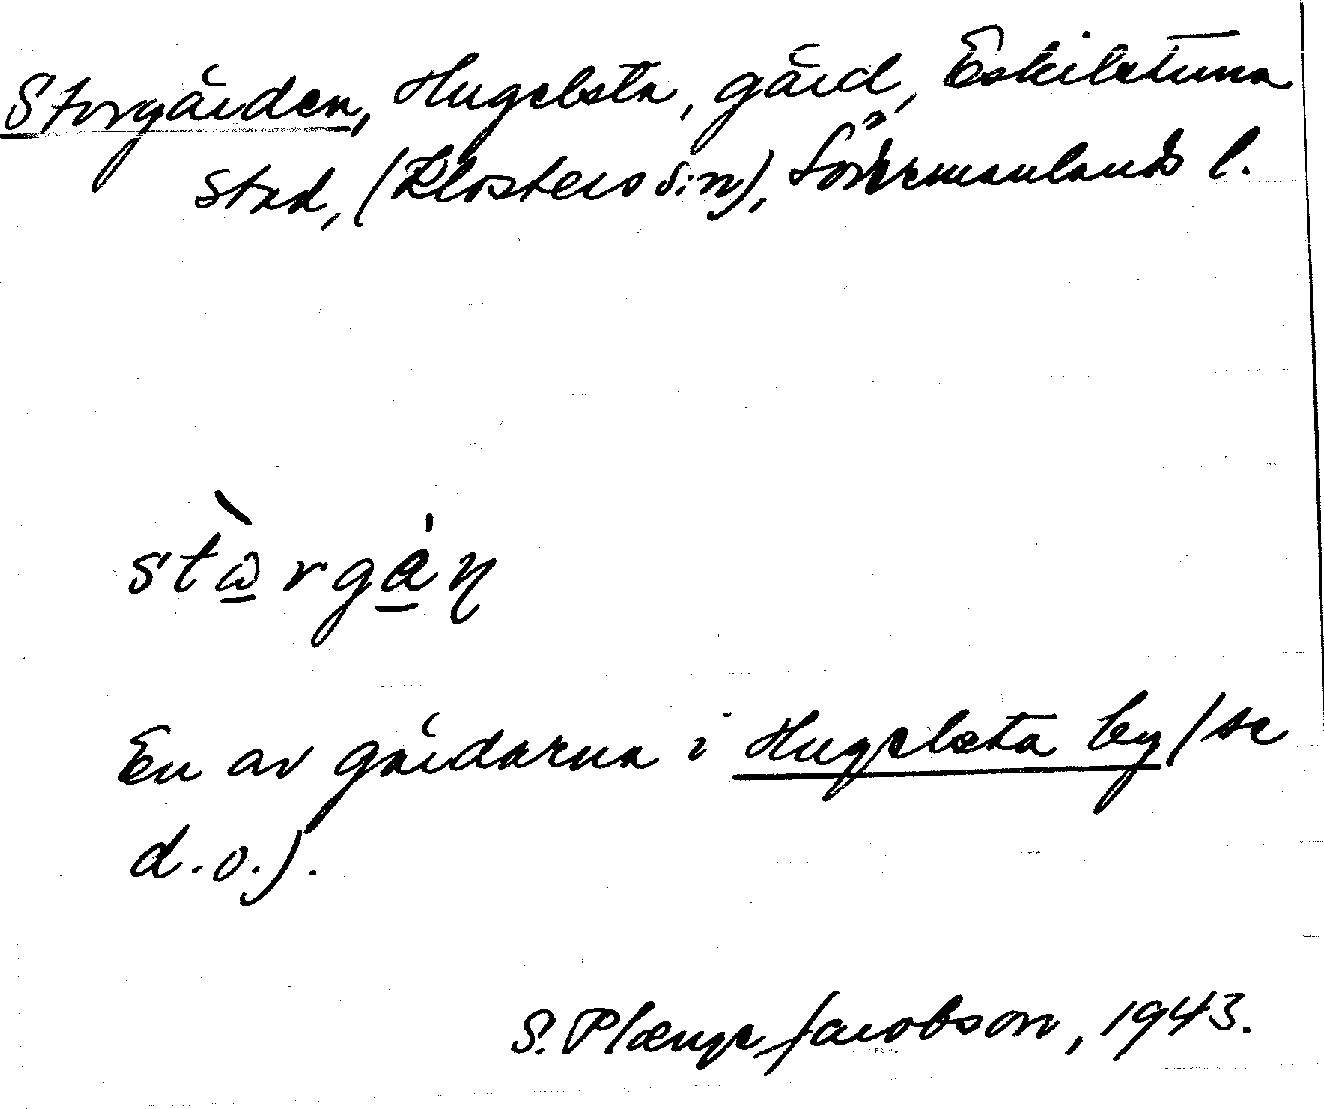 Storgården, Hugelsta, gård, Eskilstuna
stad, (Klosters s:n), Södermanlands l.
stàrgán
En av gårdarna i Hugelsta by (se
d.o.).
S. Plænge Jacobson, 1943.